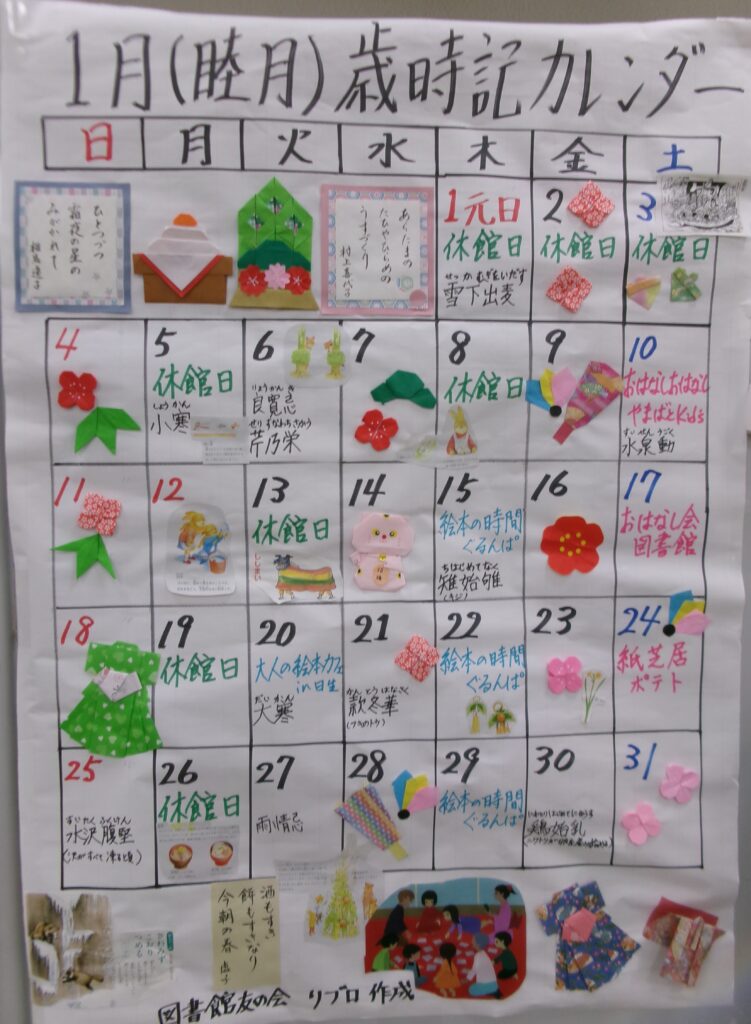 1月(睦月)歳時記カレンダー
日 月 火 水 木 金 土
ひとつづつ
霜夜の星の
みがかれて
相馬遷子
あらたまの
たびやひらめの
うすづくり
村上喜代子
1元日
休館日
せっか むぎをいだす
雪下出麦
2
休館日
3
休館日
4
5
休館日
しょうかん
小寒
6
りょうかん き
良寛忌
せり すなわちさかう
芹乃栄
7
8
休館日
9
10
おはなしおはなし
やまばとKids
すいせんうごく
水泉動
11
12
13
休館日
ししまい
14
15
絵本の時間
ぐるんぱ
きじはじめてなく
雉始雊
(キジ)
16
17
おはなし会
図書館
18
19
休館日
20
大人の絵本カフェ
in日生
だいかん
大寒
21
かんとう はなさく
款冬華
(フキのトウ)
22
絵本の時間
ぐるんぱ
23
24
紙芝居
ポテト
25
水沢腹堅
(沢がすべて凍る頃)
26
休館日
27
雨情忌
28
29
絵本の時間
ぐるんぱ
30
鶏始乳
31
酒もすき
餅もすきなり
今朝の春
虚子
図書館友の会 リブロ 作成